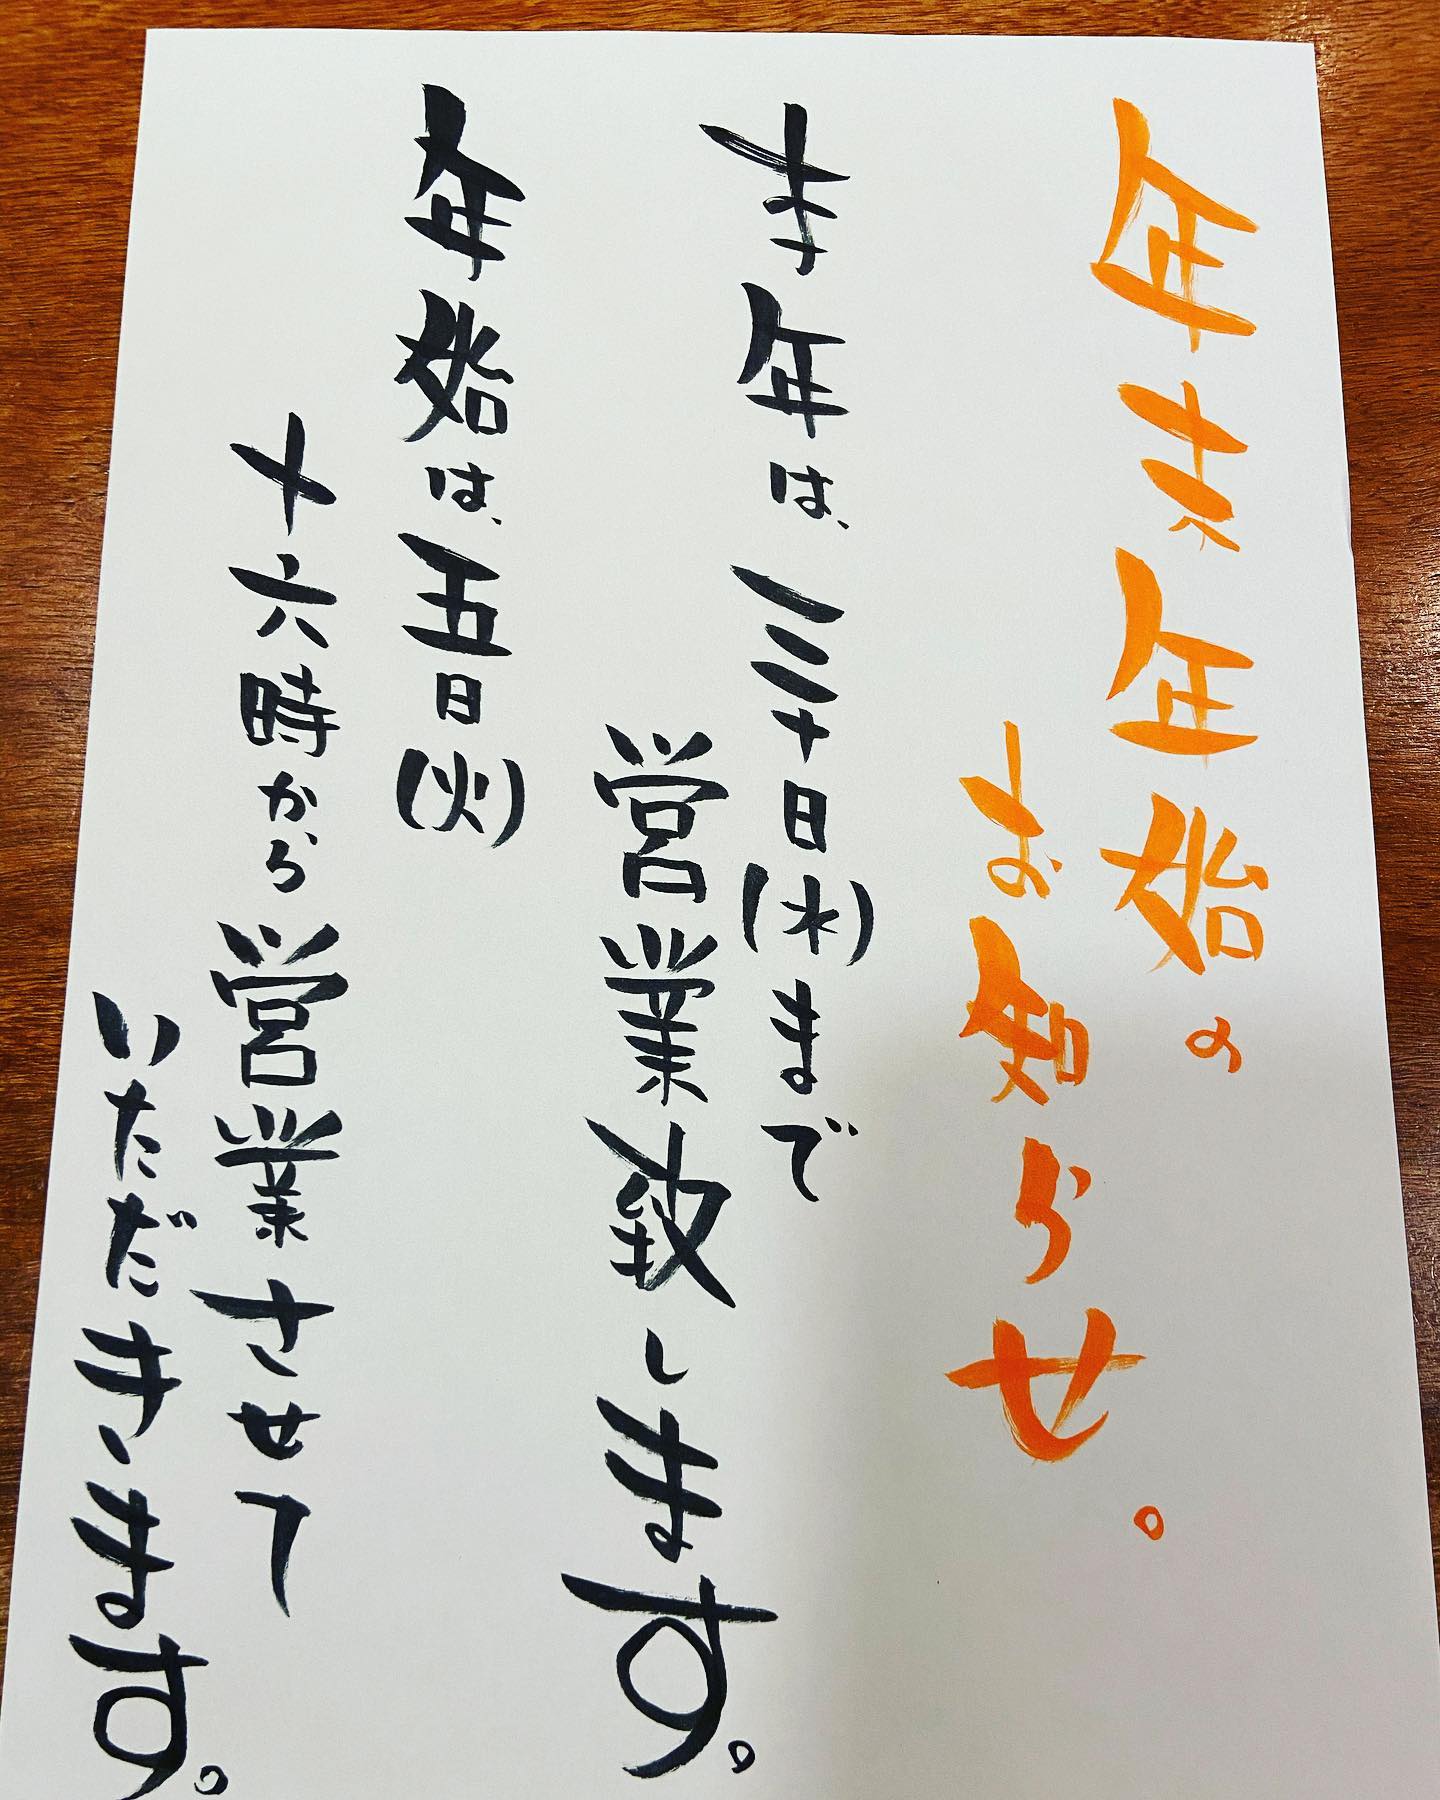 年末年始の
お知らせ。
本年は、三十日(水)まで
営業致します。
年始は、五日(火)
十六時から営業させて
いただきます。